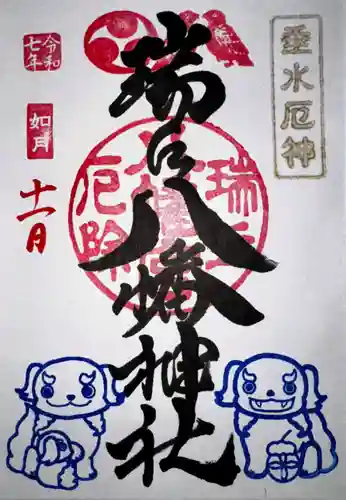 垂水厄神
瑞丘八幡神社
瑞丘
厄除
令和
七年
如月
十一日